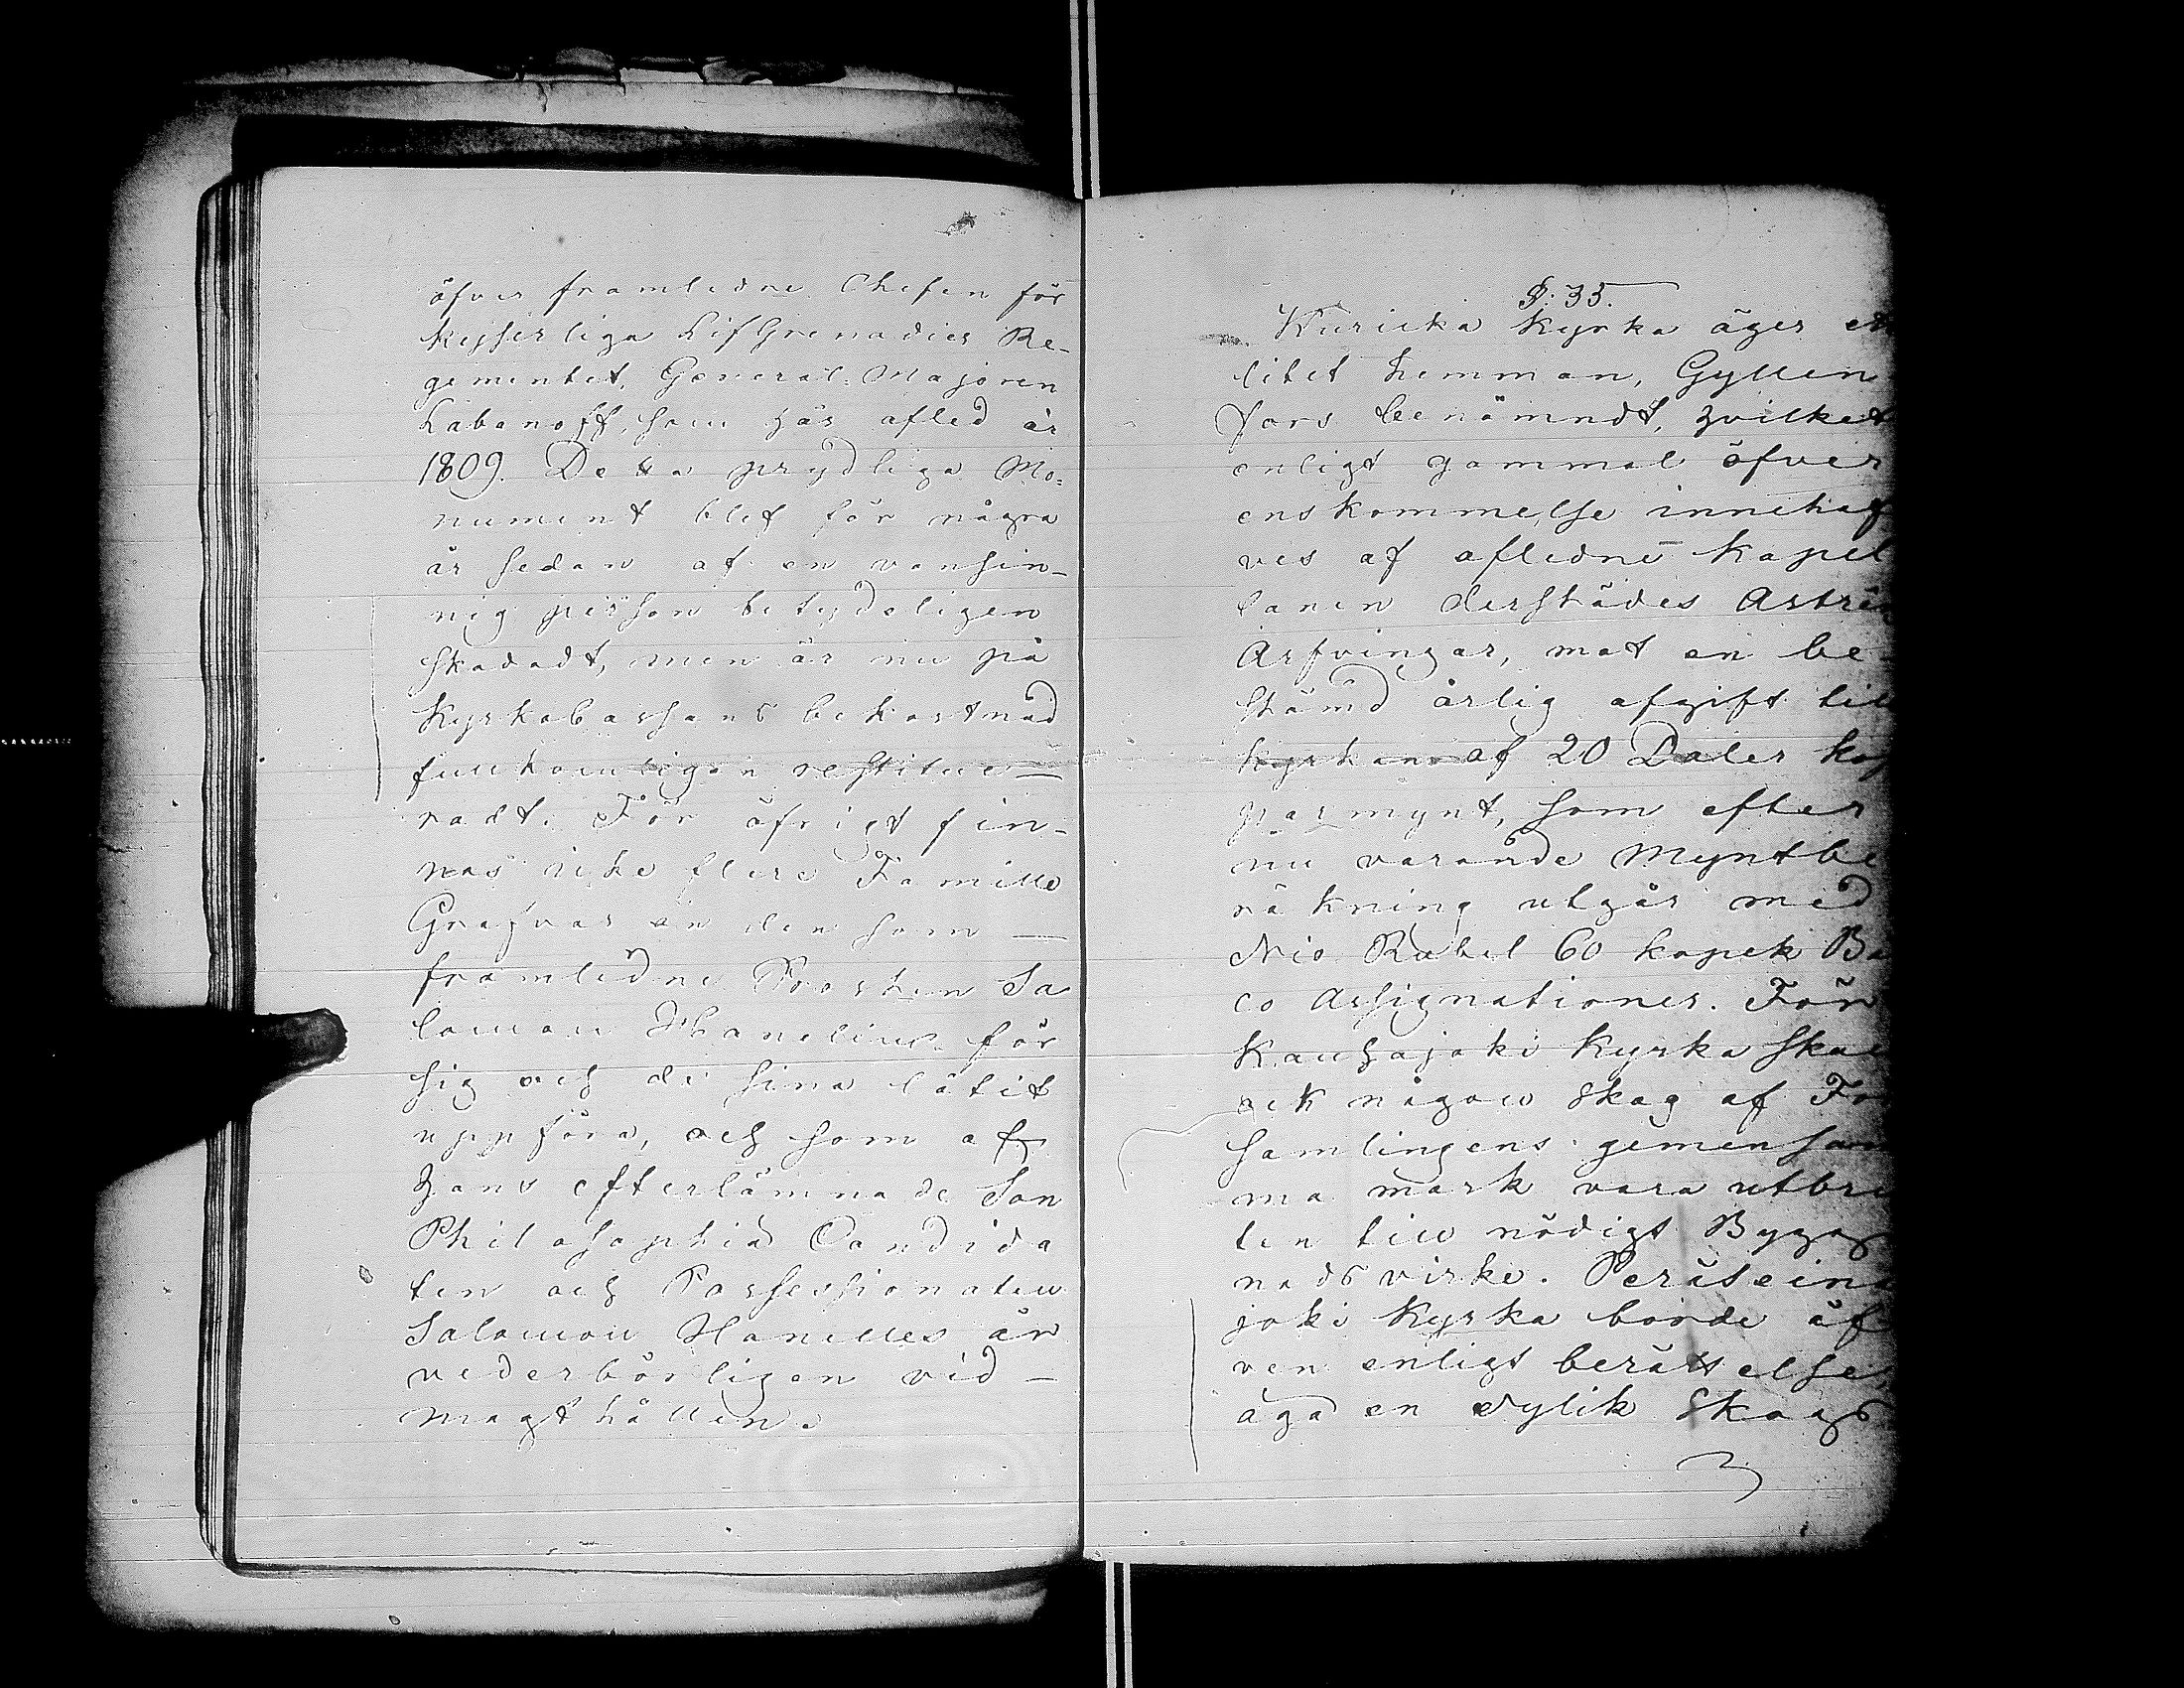 öfver framledne Chefen för
kejserliga Lif Grenadier Re-
gementet, General-Majoren
Labanoff, som här afled år
1809. Detta prydliga Mo-
nument blef för några
år sedan af en vansin-
nig person betydeligen
skadadt, men är nu på
Kyrkobarsans bekostnad
fullkomligen restitue-
radt. För öfrigt fin-
nas icke flere Famille
Grafvar än den som
framledne Prosten Sa
lomon Hanelius för
sig och de sina låtit
uppföra, och som af
hans efterlämnade Son
Philosophiæ Candida
ten och Possessionaten
Salomon Hanelles är
vederbörligen vid-
magthållen.
§: 35.
Kuricka Kyrka äger et
litet hemman, Gyllen
fors benämndt, hvilket
enligt gammal öfver
enskommelse innehaf
ves af aflednē Kapel
lanen derstädes Aströ
Arfvingar, mot en be-
stämd årlig afgift till
kyrkan af 20 Daler kop
parmynt, som efter
nu varande Myntbe
räkning utgår med
Nio Rubel 60 kopek Ba
co Assignationer. För
Kauhajoki Kyrka skall
ock någon skog af För
samlingens gemensam
ma mark vara utbru
ten till nödigt Bygg
nads virke. Peräseinä
joki Kyrka borde äf
ven enligt berättelse,
äga en dylik Skogs